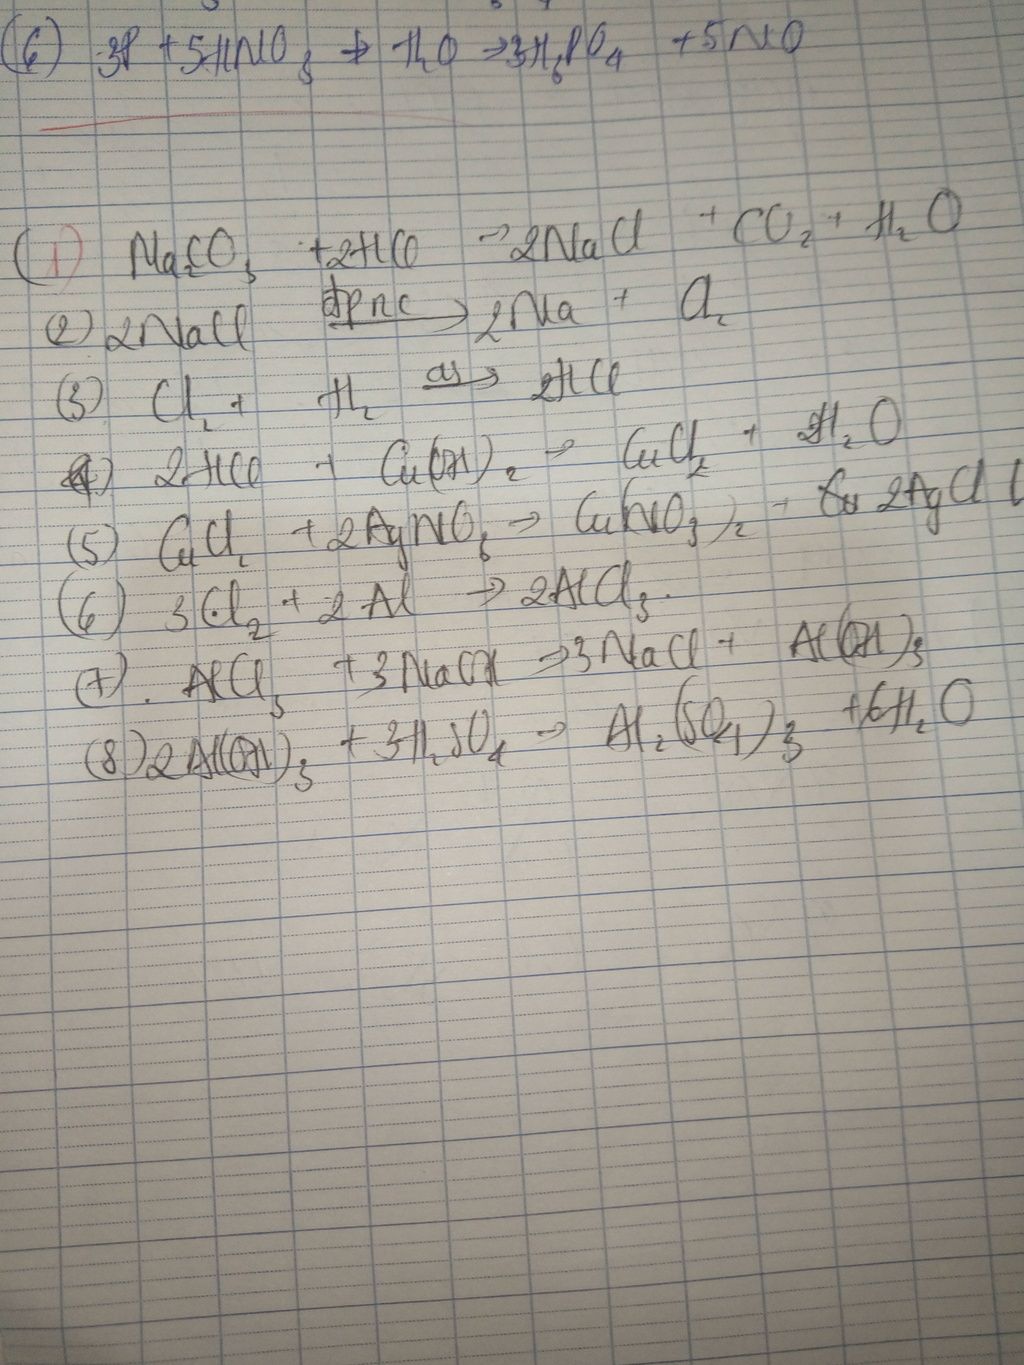 (6) 3P + 5HNO3 + H2O → 3H3PO4 + 5NO
(1) Na2CO3 + 2HCl → 2NaCl + CO2 + H2O
(2) 2NaCl đpnc → 2Na + Cl2
(3) Cl2 + H2 as → 2HCl
(4) 2HCl + Cu(OH)2 → CuCl2 + 2H2O
(5) CuCl2 + 2AgNO3 → Cu(NO3)2 + 2AgCl ↓
(6) 3Cl2 + 2Al → 2AlCl3.
(7). AlCl3 + 3NaOH → 3NaCl + Al(OH)3
(8) 2Al(OH)3 + 3H2SO4 → Al2(SO4)3 + 6H2O